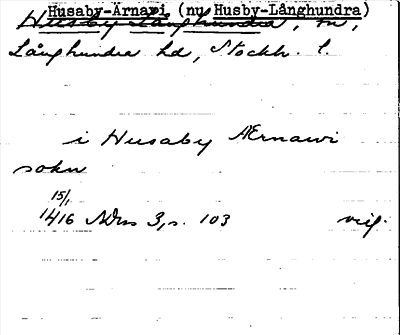 Husaby-Ärnavi (nu Husby-Långhundra)
Husby-Långhundra, sn,
Långhundra hd, Stockh. l.
i Husaby Ærnawi
sokn
15/1
1416 NDns 3, s. 103 orig.